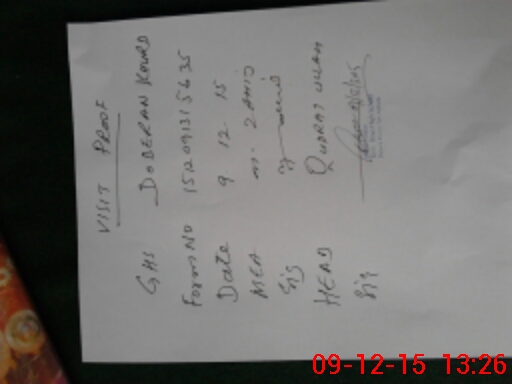 VISIT PROOF
GHS DOBERAN KHURD
Form No 151209131 5635
Date 9 12 15
MEA m. ZAHID
Sig
HEAD QUDRAT ULLAH
Sig
09-12-15 13:26